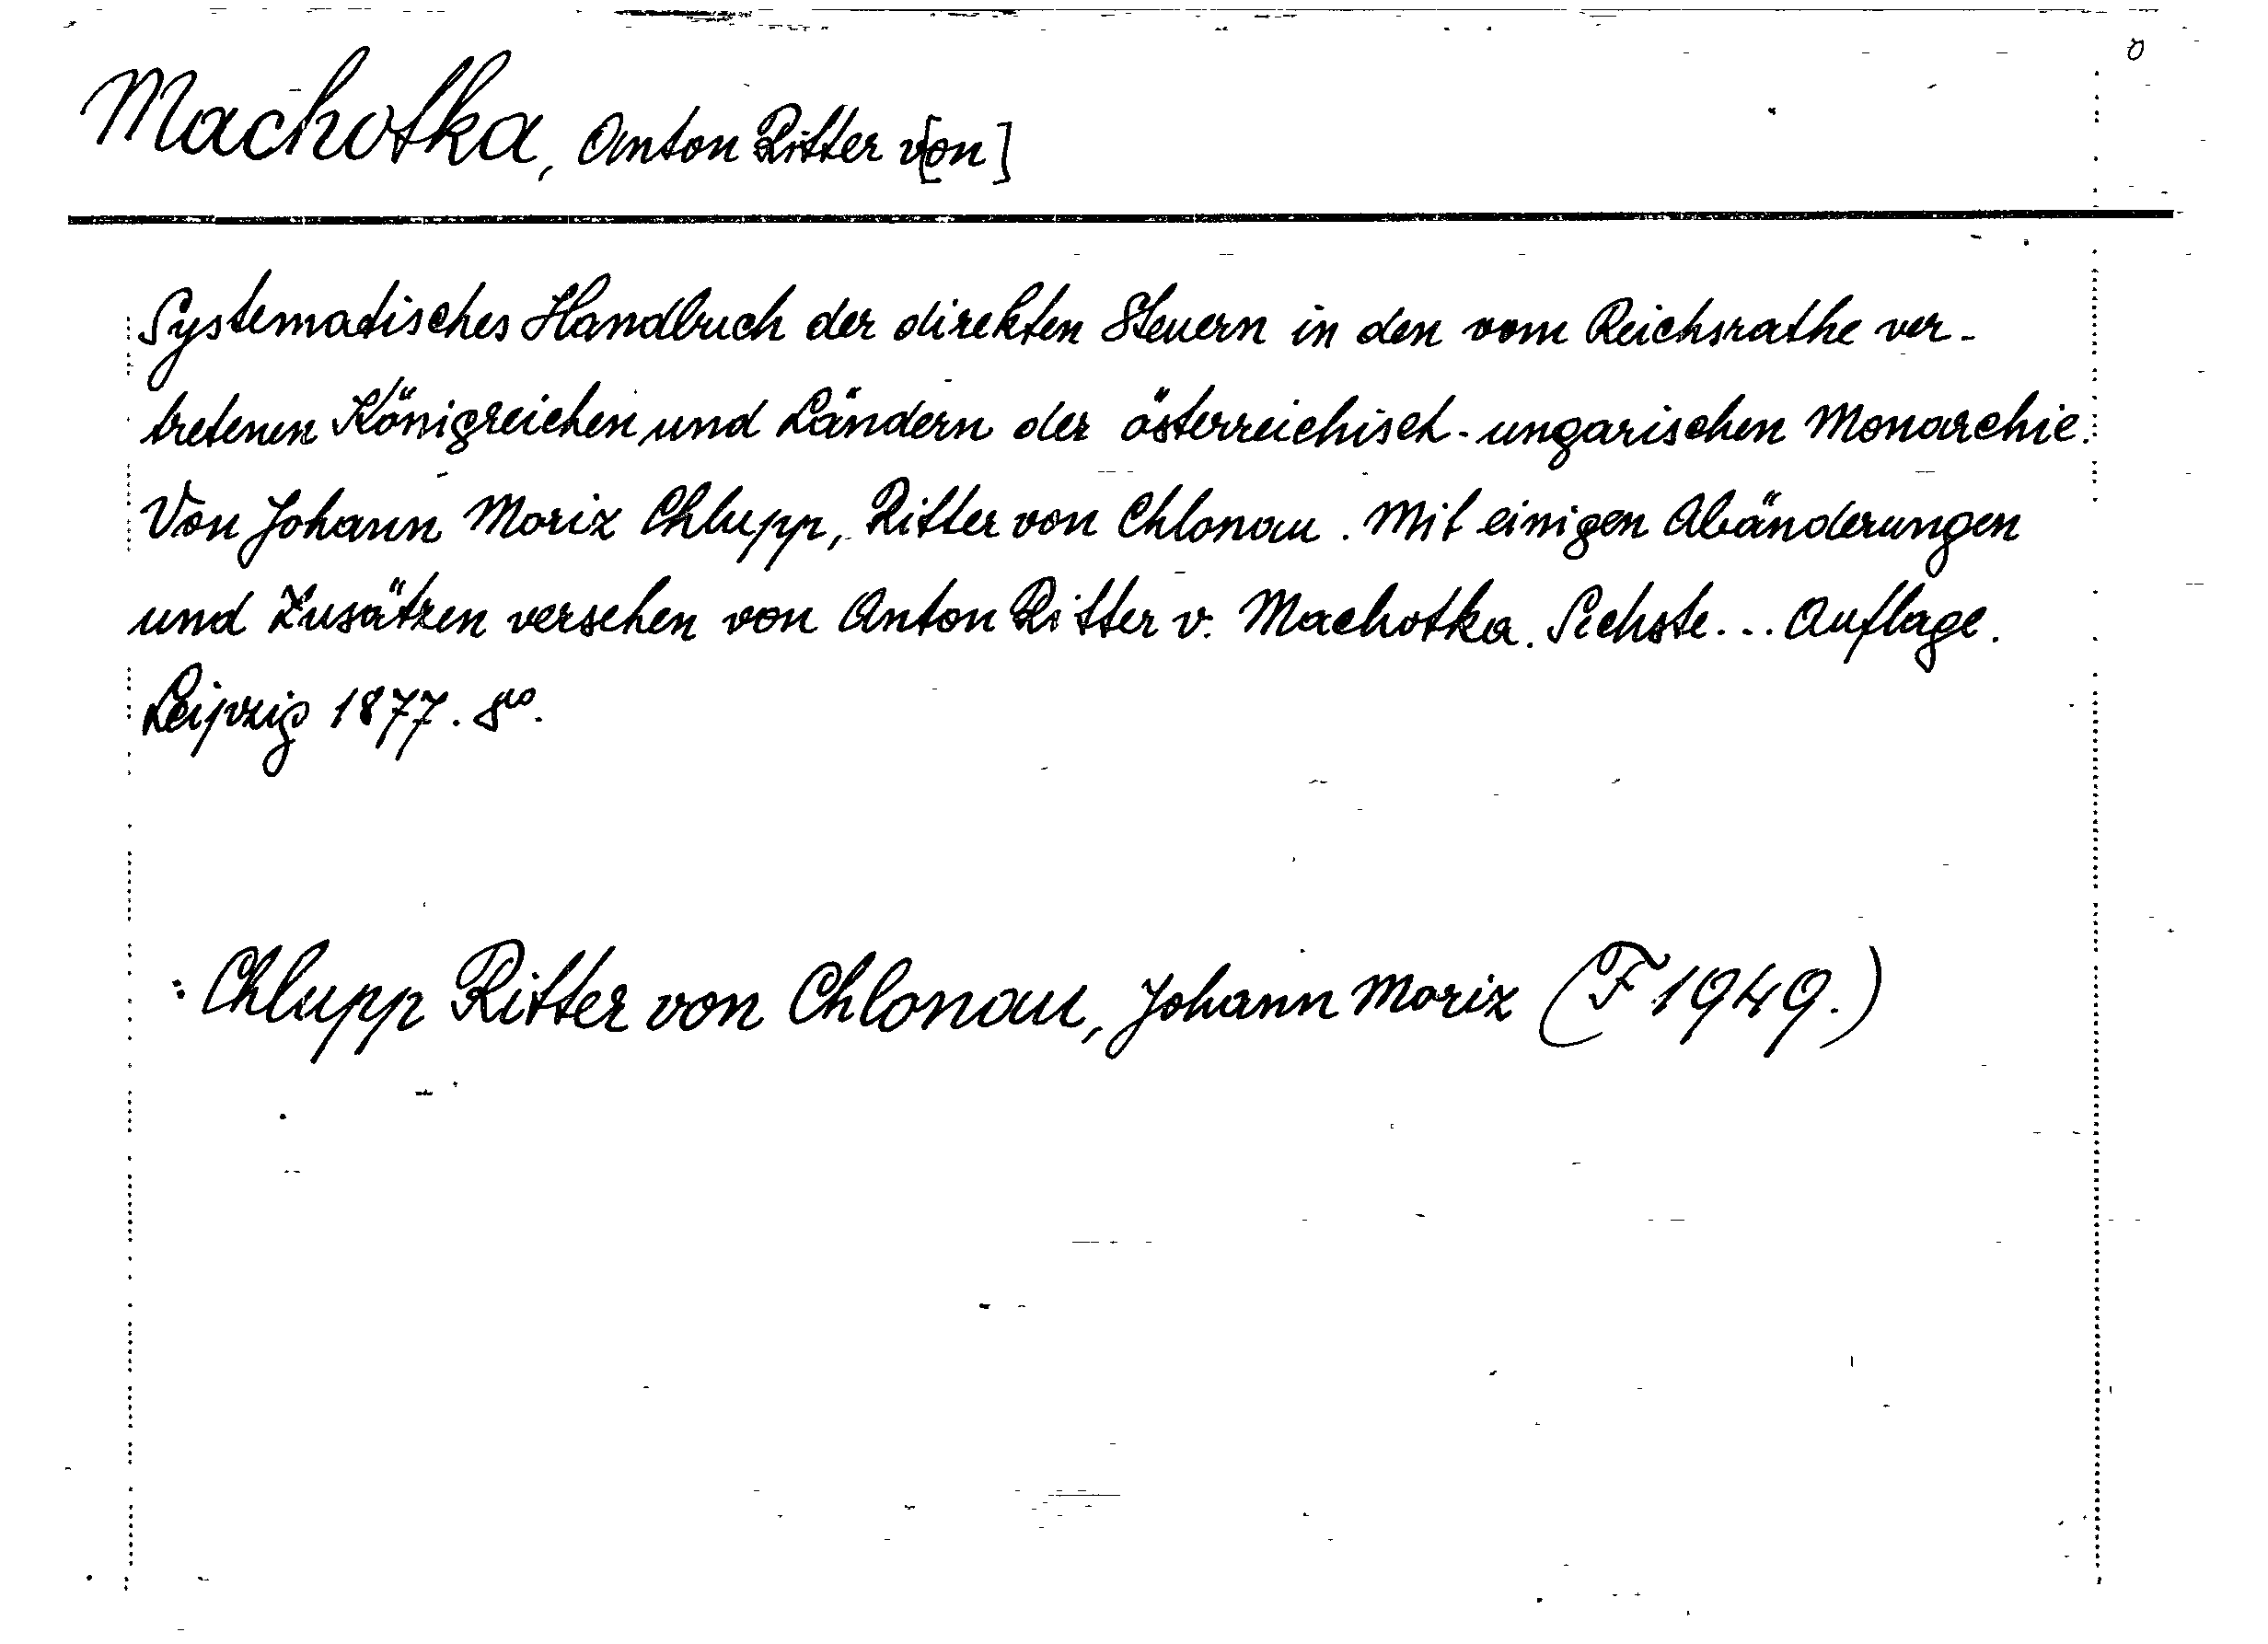 Machotka, Anton Ritter v[on]
Systematisches Handbuch der direkten Steuern in den vom Reichsrathe ver-
tretenen Königreichen und Ländern der österreichisch-ungarischen Monarchie.
Von Johann Moriz Chlupp, Ritter von Chlonau. Mit einigen Abänderungen
und Zusätzen versehen von Anton Ritter v. Machotka. Sechste... Auflage.
Leipzig 1877. 8vo.
: Chlupp Ritter von Chlonau, Johann Moriz (F 1949.)